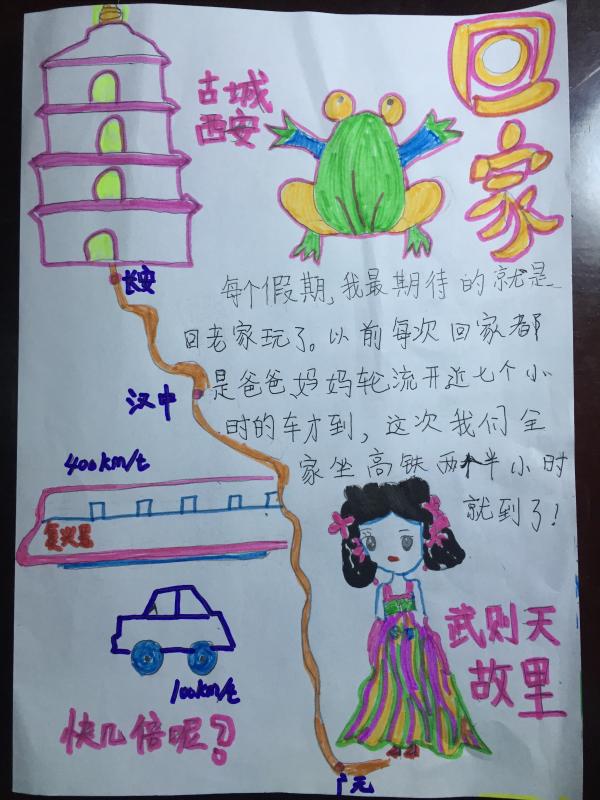 回家
古城
西安
长安
每个假期,我最期待的就是
回老家玩了。以前每次回家都
是爸爸、妈妈轮流开近七个小
时的车才到,这次我们全
家坐高铁两个半小时
就到了!
汉中
400km/t
复兴号
100km/t
快几倍呢?
武则天
故里
广元